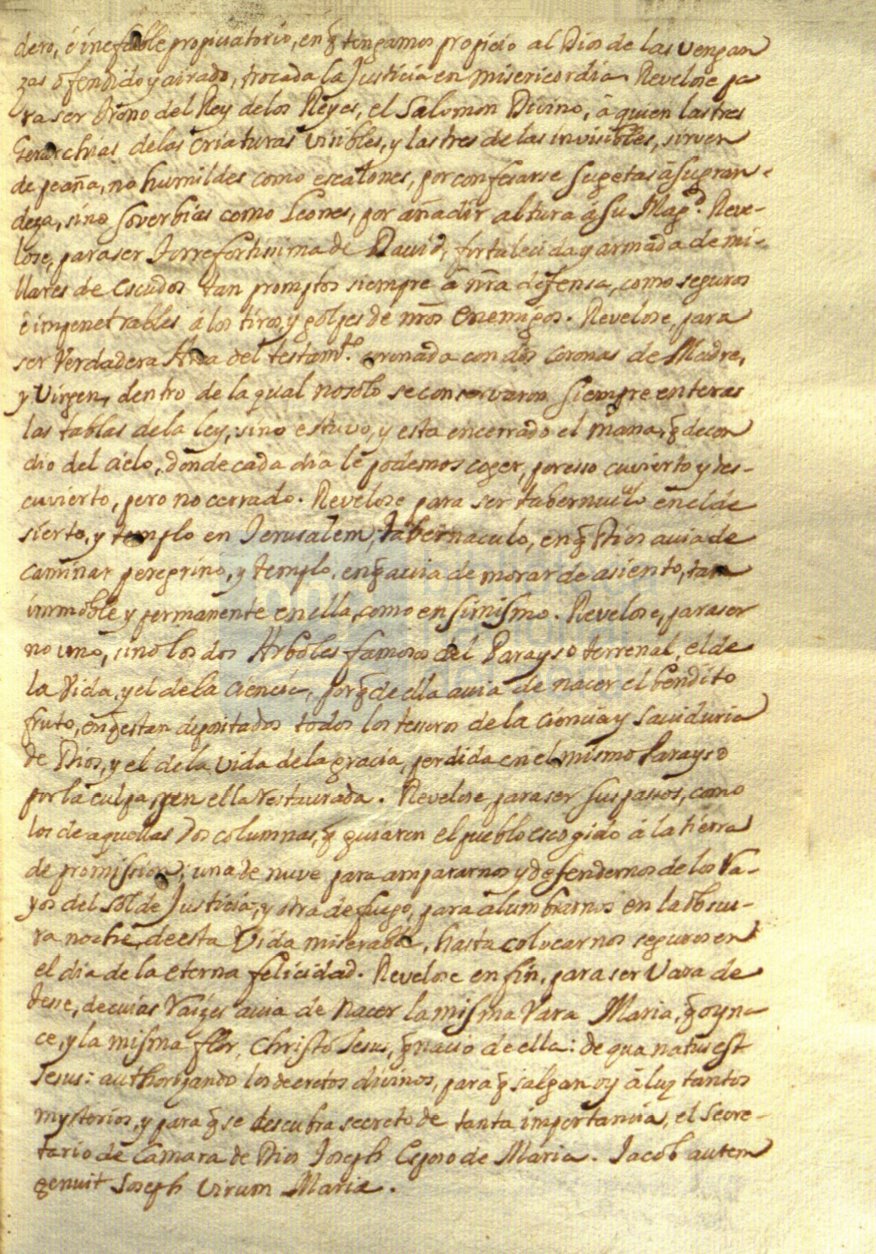 dero, é inefable propiciatorio, en q̃ tengamos propicio al Dios de las vengan
zas ofendido y airado, trocada la Justicia en misericordia. Revelose pa
ra ser trono del Rey de los Reyes, el Salomon Divino, á quien las tres
Gerarchias de las criaturas visibles, y las tres de las invisibles, sirven
de peaña, no humildes como escalones, por confesarse sugetas á su gran
deza, sino soverbias como Leones, por añadir altura á su Mag.d Reve-
lose, para ser Torre fortissima de David, fortalecida y armada de mi-
llares de escudos tan promptos siempre á nr̃a defensa, como seguros
é impenetrables á los tiros y golpes de nr̃os enemigos. Revelose, para
ser Verdadera Arca del testam.to coronada con dos coronas de Madre,
y Virgen, dentro de la qual no solo se conservaron siempre enteras
las tablas de la ley, sino estuvo, y esta encerrado el mana, q̃ decen
dio del cielo, donde cada dia le podemos coger, por esso cuvierto y des-
cuvierto, pero no cerrado. Revelose para ser tabernaculo en el de
sierto, y templo en Jerusalem, tabernaculo, en q̃ Dios avia de
caminar peregrino, y templo, en q̃ avia de morar de asiento, tan
immoble y permanente en ella, como en si mismo. Revelose, para ser
no uno, sino los dos Arboles famosos del Parayso terrenal, el de
la Vida, y el de la ciencia, por q̃ de ella avia de nacer el bendito
fruto, en q̃ estan depositados todos los tesoros de la ciencia y saviduria
de Dios, y el de la vida de la gracia, perdida en el mismo Parayso
por la culpa, y en ella restaurada. Revelose para ser sus passos, como
los de aquellas dos columnas, q̃ guiaron el pueblo escogido á la tierra
de promission; una de nuve para ampararnos y defendernos de los Ra-
yos del sol de Justicia, y otra de fuego, para alumbrarnos en la obscu-
ra noche de esta Vida miserable, hasta colocarnos seguros en
el dia de la eterna felicidad. Revelose en fin, para ser Vara de
Jesse, de cuias Raizes avia de nacer la misma Vara Maria, q̃ oy na-
ce, y la misma flor, Christo Jesus, q̃ nacio de ella: de qua natus est
Jesus: authorizando los decretos divinos, para q̃ salgan oy á luz tantos
mysterios, y para q̃ se descubra secreto de tanta importancia, el Secre-
tario de Camara de Dios Joseph Esposo de Maria. Jacob autem
genuit Joseph virum Mariæ.